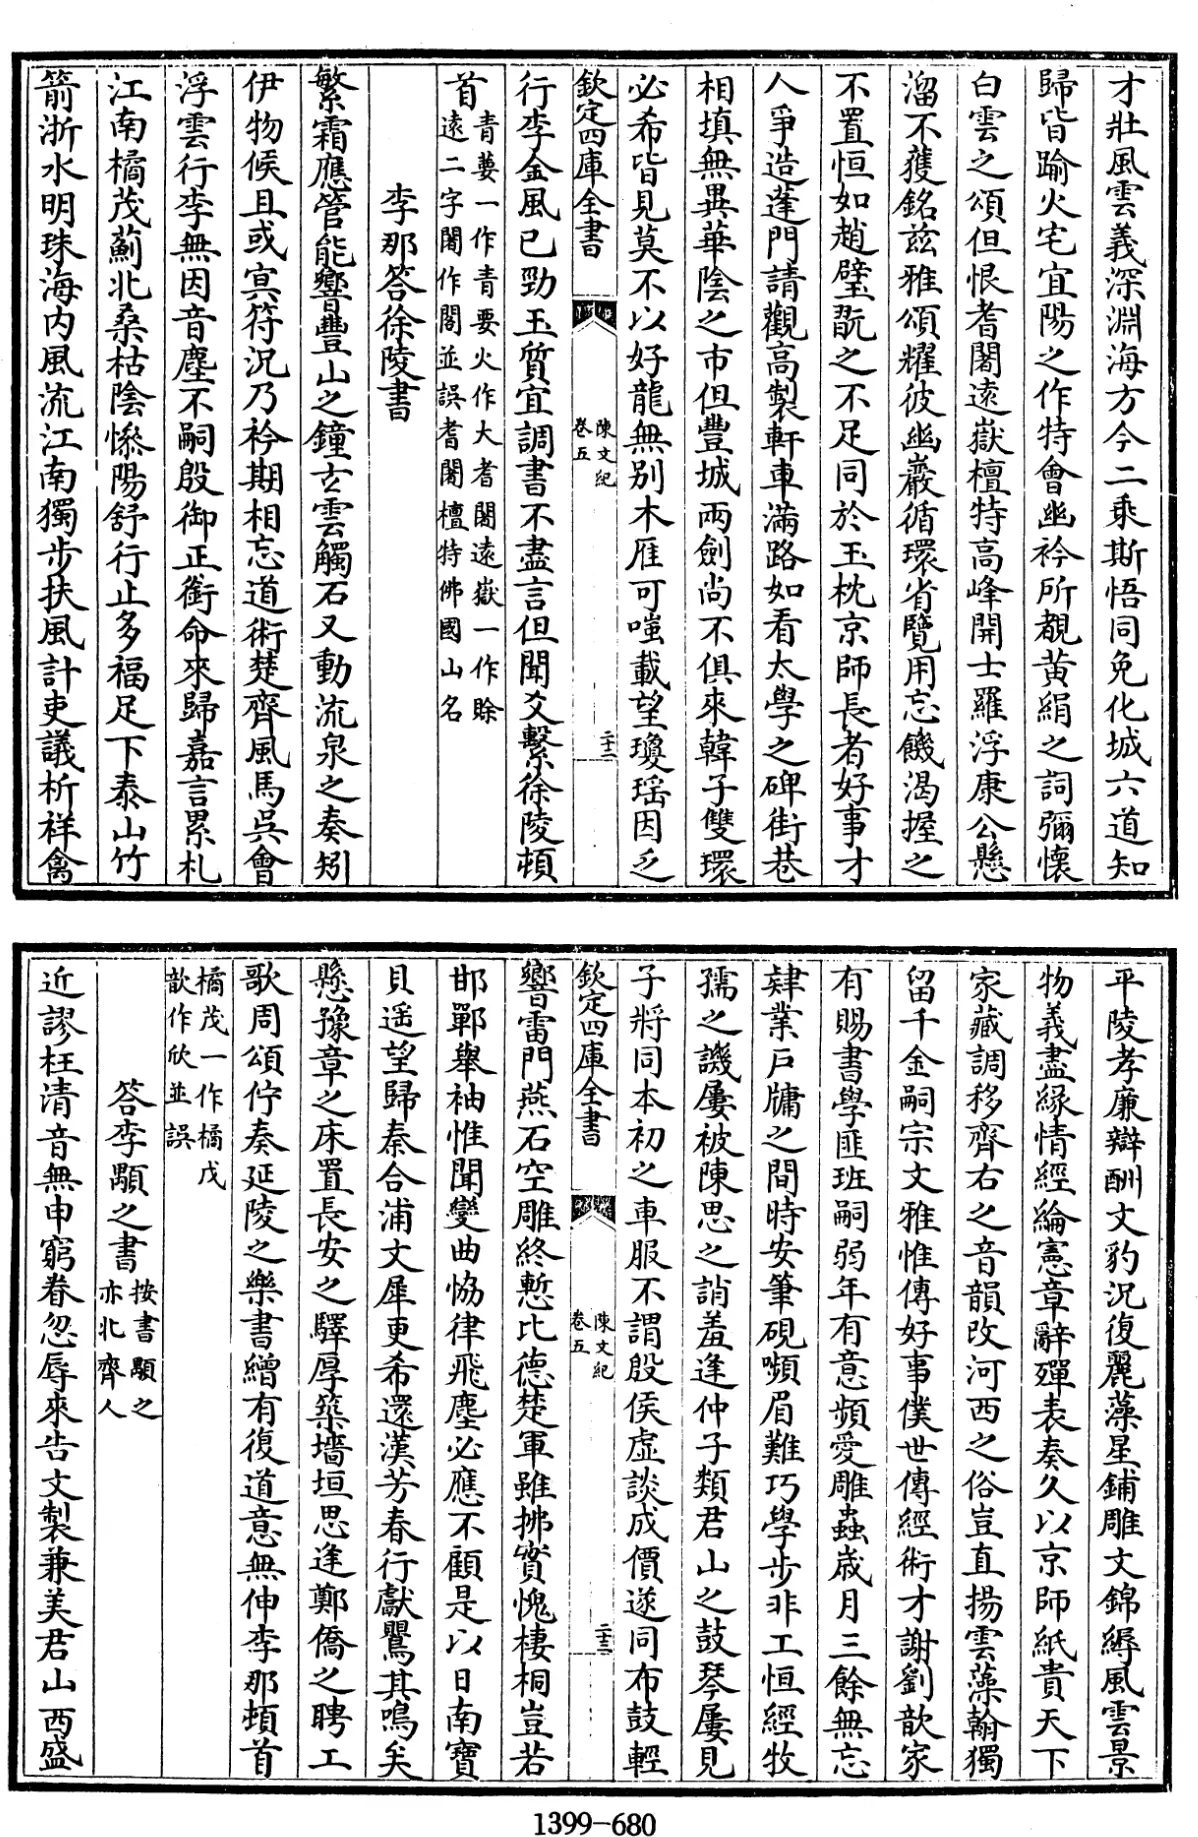 才壯風雲義深淵海方今二乘斯悟同免化城六道知
歸皆踰火宅宜陽之作特會幽衿所覩黃絹之詞彌懷
白雲之頌但恨耆闍遠嶽檀特高峰開士羅浮康公懸
溜不獲銘兹雅頌耀彼幽巖循環省覽用忘饑渴握之
不置恒如趙璧翫之不足同於玉枕京師長者好事才
人爭造蓬門請觀高製軒車滿路如看太學之碑街巷
相填無異華陰之市但豐城兩劍尚不俱來韓子雙環
必希皆見莫不以好龍無別木雁可嗤載望瓊瑶因乏
欽定四庫全書
陳文紀
卷五
二十二
行李金風已勁玉質宜調書不盡言但聞爻繫徐陵頓
首
青蔞一作青要火作大耆闍遠嶽一作賒
遠二字闍作閣並誤耆闍檀特佛國山名
李那答徐陵書
繁霜應管能響豐山之鐘玄雲觸石又動流泉之奏矧
伊物候且或冥符況乃衿期相忘道術楚齊風馬吳會
浮雲行李無因音塵不嗣殷御正銜命來歸嘉言累札
江南橘茂薊北桑枯陰慘陽舒行止多福足下泰山竹
箭浙水明珠海内風流江南獨步扶風計吏議析祥禽
平陵孝廉辯酬文豹況復麗藻星鋪雕文錦縟風雲景
物義盡緣情經綸憲章辭殫表奏久以京師紙貴天下
家藏調移齊右之音韻改河西之俗豈直揚雲藻翰獨
留千金嗣宗文雅惟傳好事僕世傳經術才謝劉歆家
有賜書學匪班嗣弱年有意頻愛雕蟲歲月三餘無忘
肄業戶牖之間時安筆硯嚬眉難巧學步非工恒經牧
孺之譏屢被陳思之誚羞逢仲子類君山之鼓琴屢見
子將同本初之車服不謂殷侯虛談成價遂同布鼓輕
欽定四庫全書
陳文紀
卷五
二十三
響雷門燕石空雕終慙比德楚軍雖拂實愧棲桐豈若
邯鄲舉袖惟聞變曲恊律飛塵必應不顧是以日南寶
貝遥望歸秦合浦文犀更希還漢芳春行獻鸎其鳴矣
懸豫章之床置長安之驛厚築墻垣思逢鄭僑之聘工
歌周頌佇奏延陵之樂書繒有復道意無伸李那頓首
橘茂一作橘戊
歆作欣並誤
答李顒之書
按書顒之
亦北齊人
近謬枉清音無申窮眷忽辱來告文製兼美君山西盛
1399-680